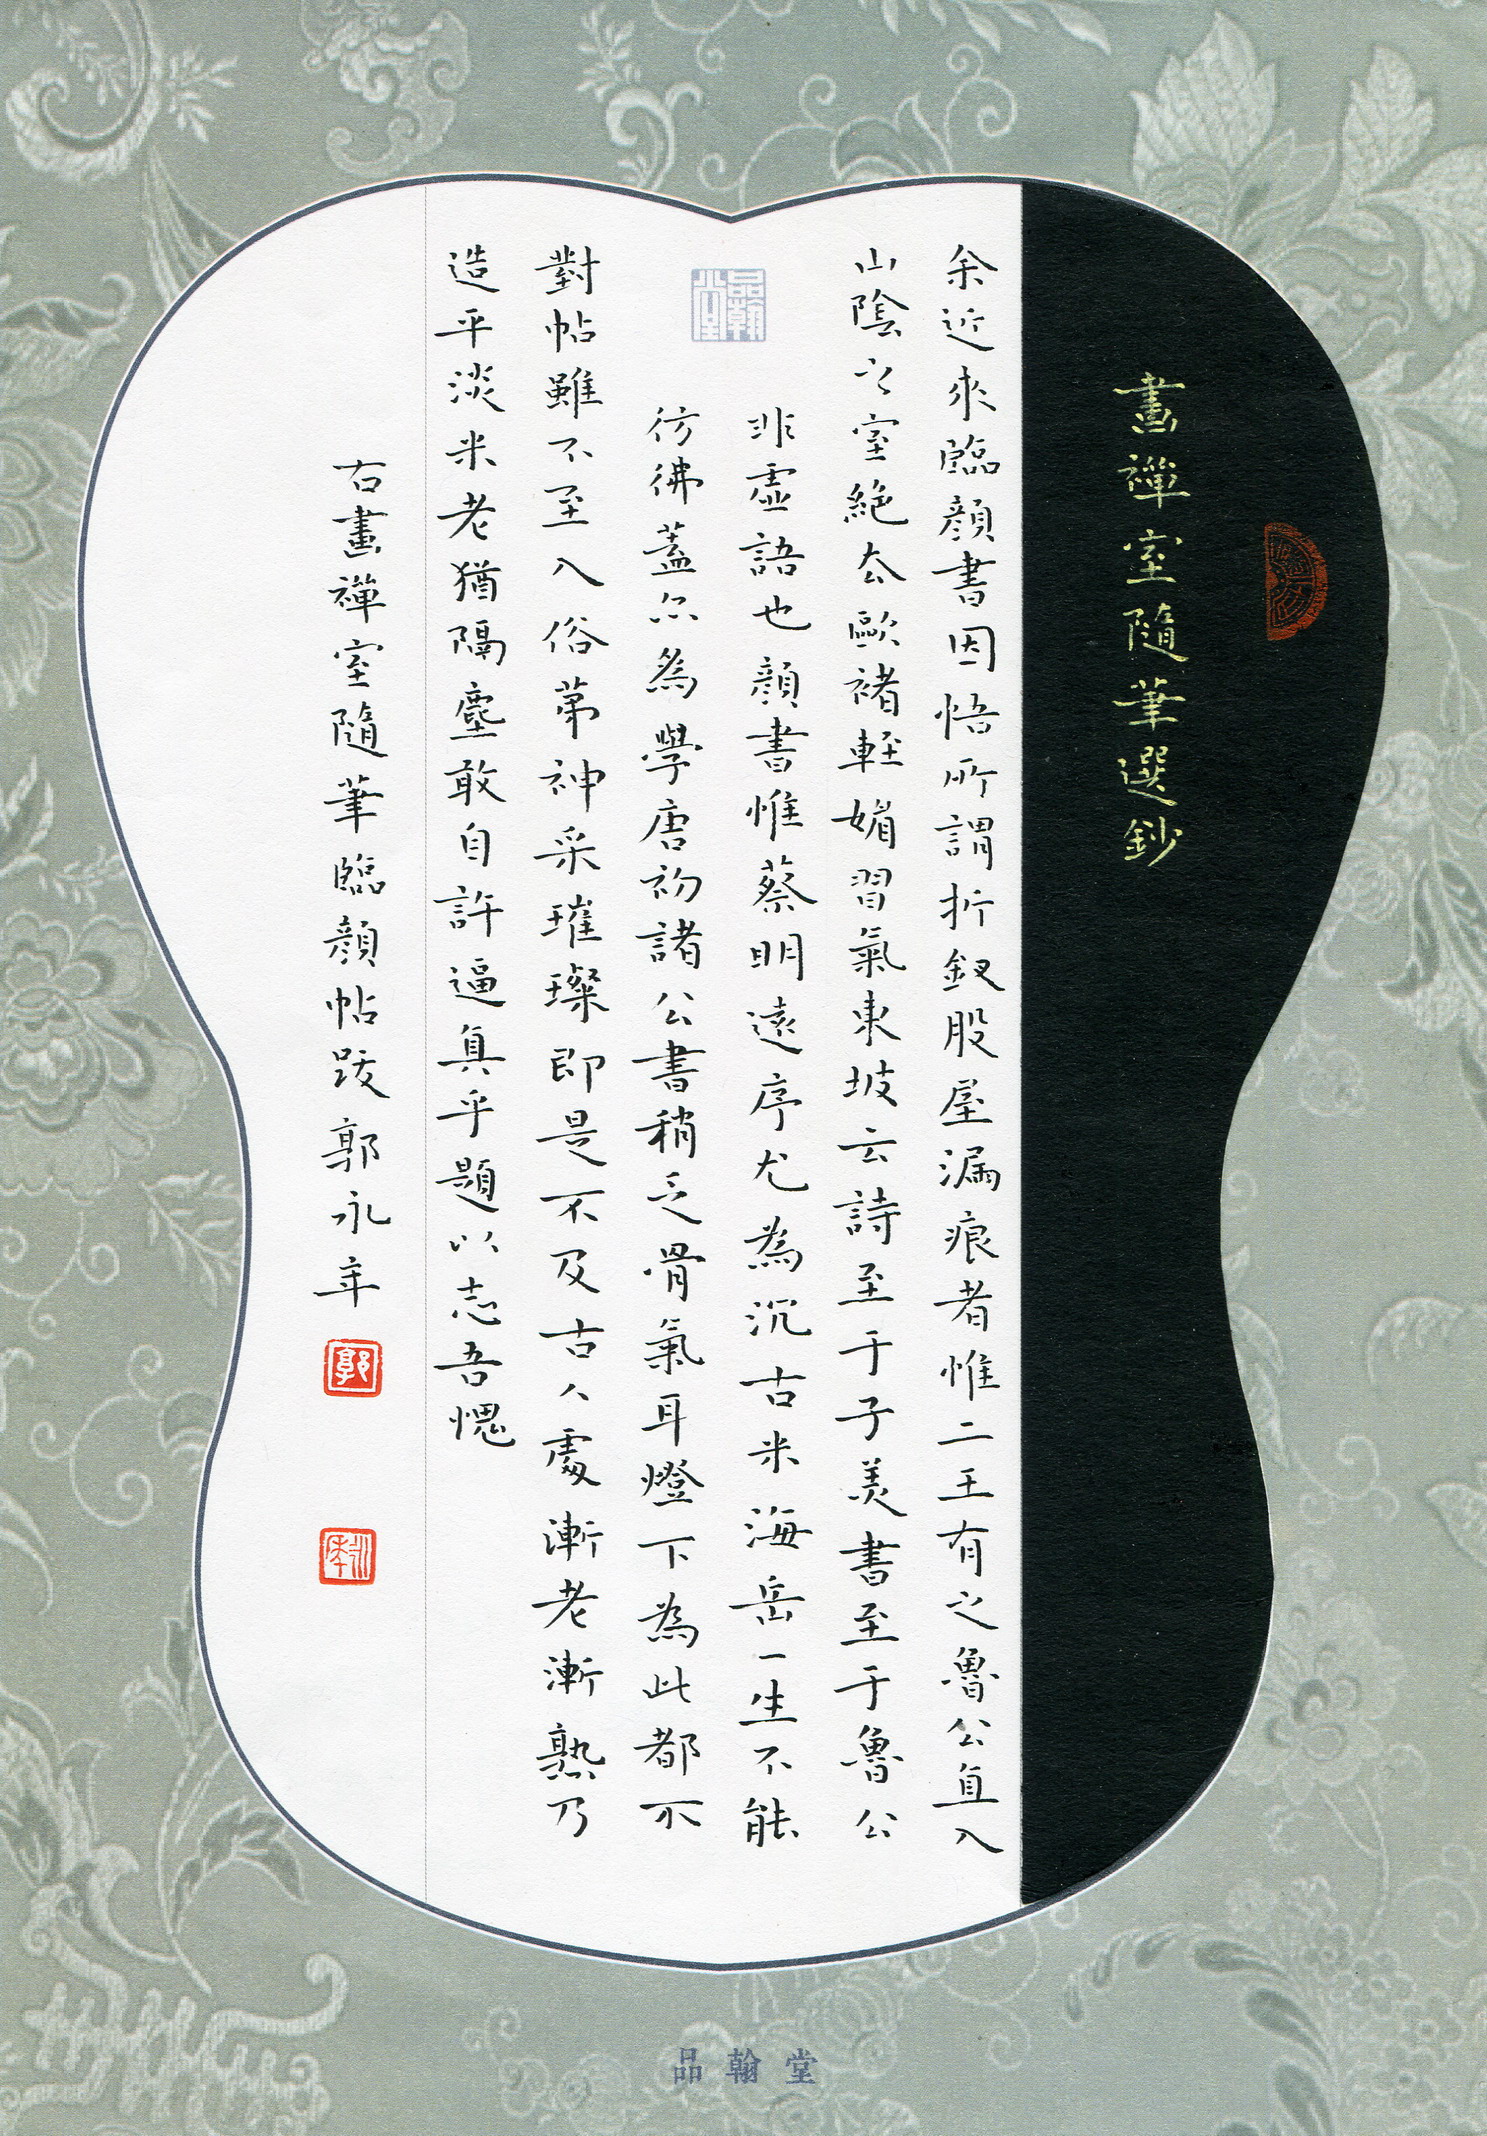 畫禪室隨筆選鈔
余近來臨顔書因悟所謂折釵股屋漏痕者惟二王有之魯公直入
山陰之室絕去歐褚輕媚習氣東坡云詩至于子美書至于魯公
非虛語也顔書惟蔡明遠序尤為沉古米海岳一生不能
彷彿蓋尒為學唐初諸公書稍乏骨氣耳燈下為此都不
對帖雖不至入俗第神采璀璨即是不及古人處漸老漸熟乃
造平淡米老猶隔塵敢自許逼真乎題以志吾愧
右畫禪室隨筆臨顔帖跋郭永年
郭
永年
品翰堂
品翰堂